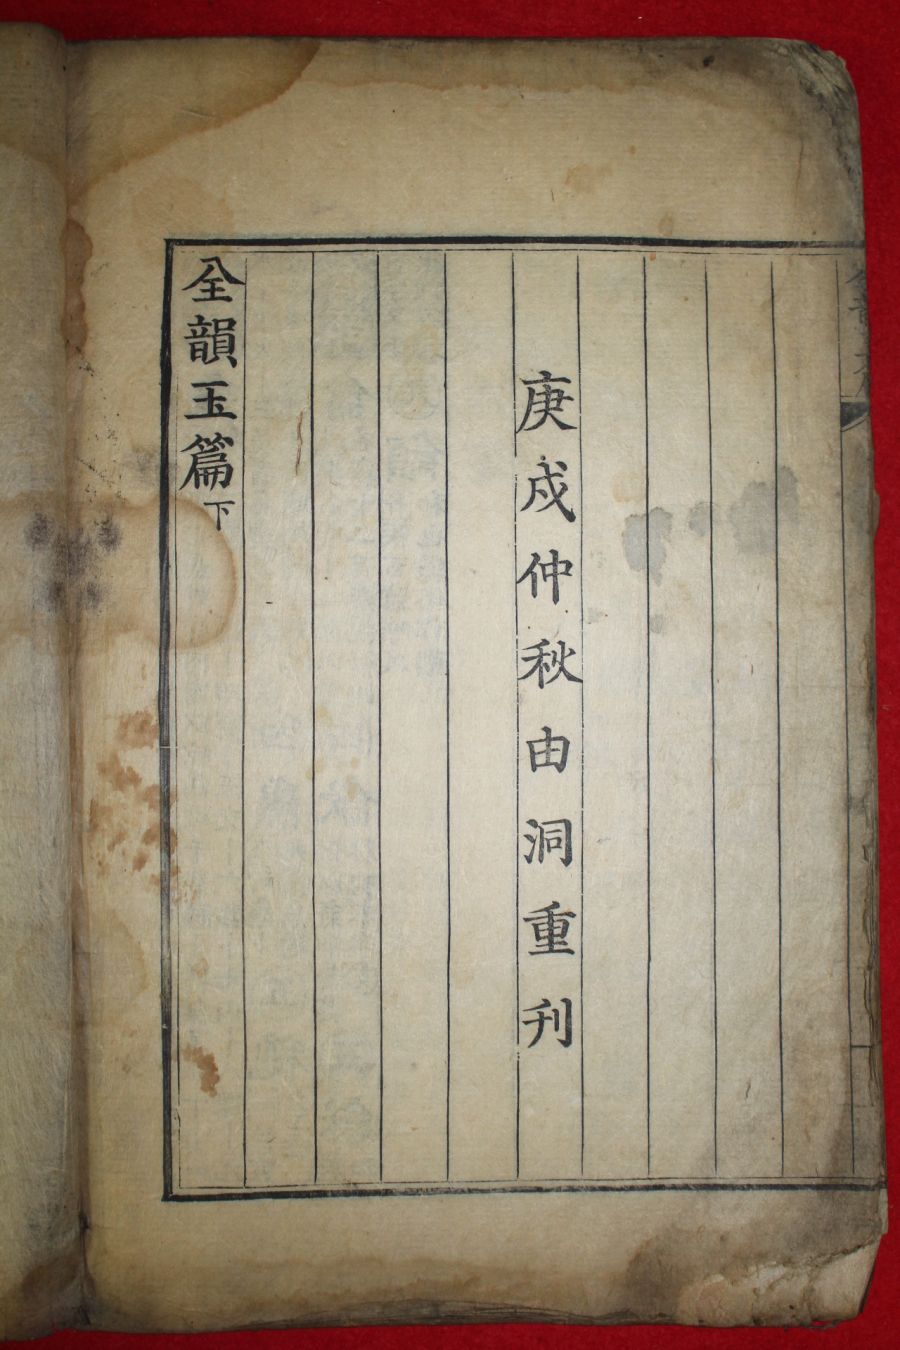 庚戌仲秋由洞重刋
全韻玉篇下